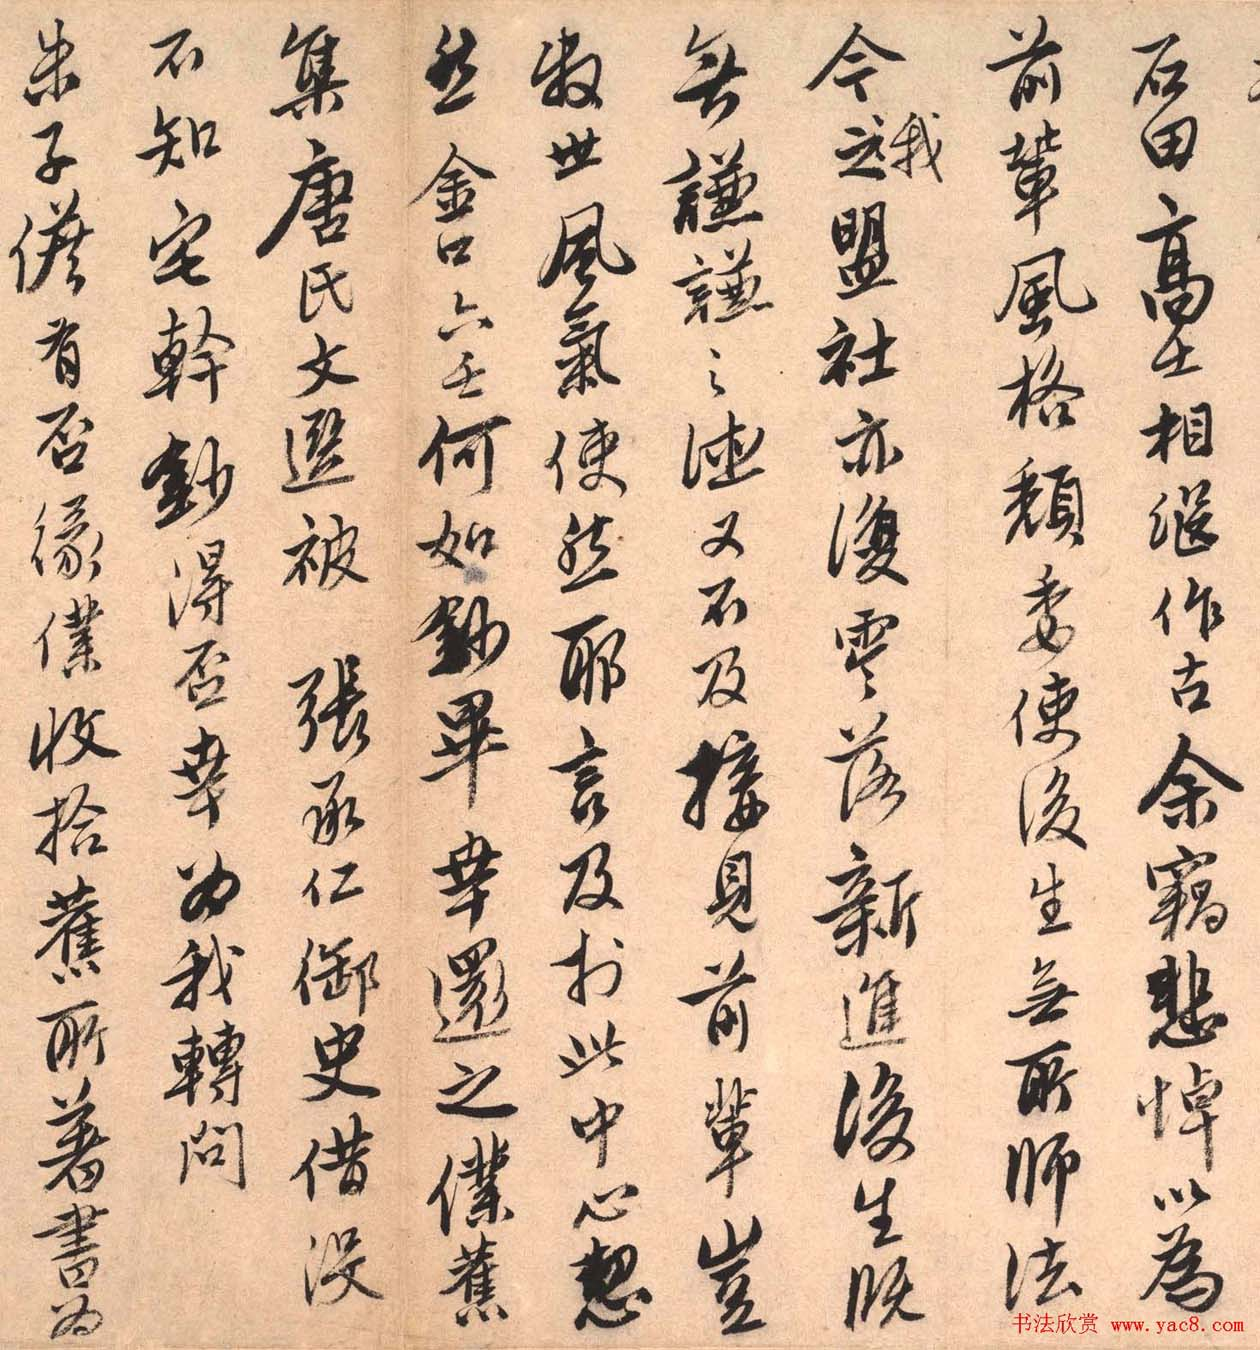 石田高士相繼作古余竊悲悼以為
前輩風格頹委使後生無所師法
今之我盟社亦復零落新進後生既
無謙謙之德又不及接見前輩豈
世風氣使然耶言及於此中心
然金口六壬何如鈔畢幸還之僕舊
集唐氏文選被 張承仁御史借沒
不知宅幹鈔得否幸為我轉問
朱子儋有否緣僕收拾舊所著書為
书法欣赏 www.yac8.com